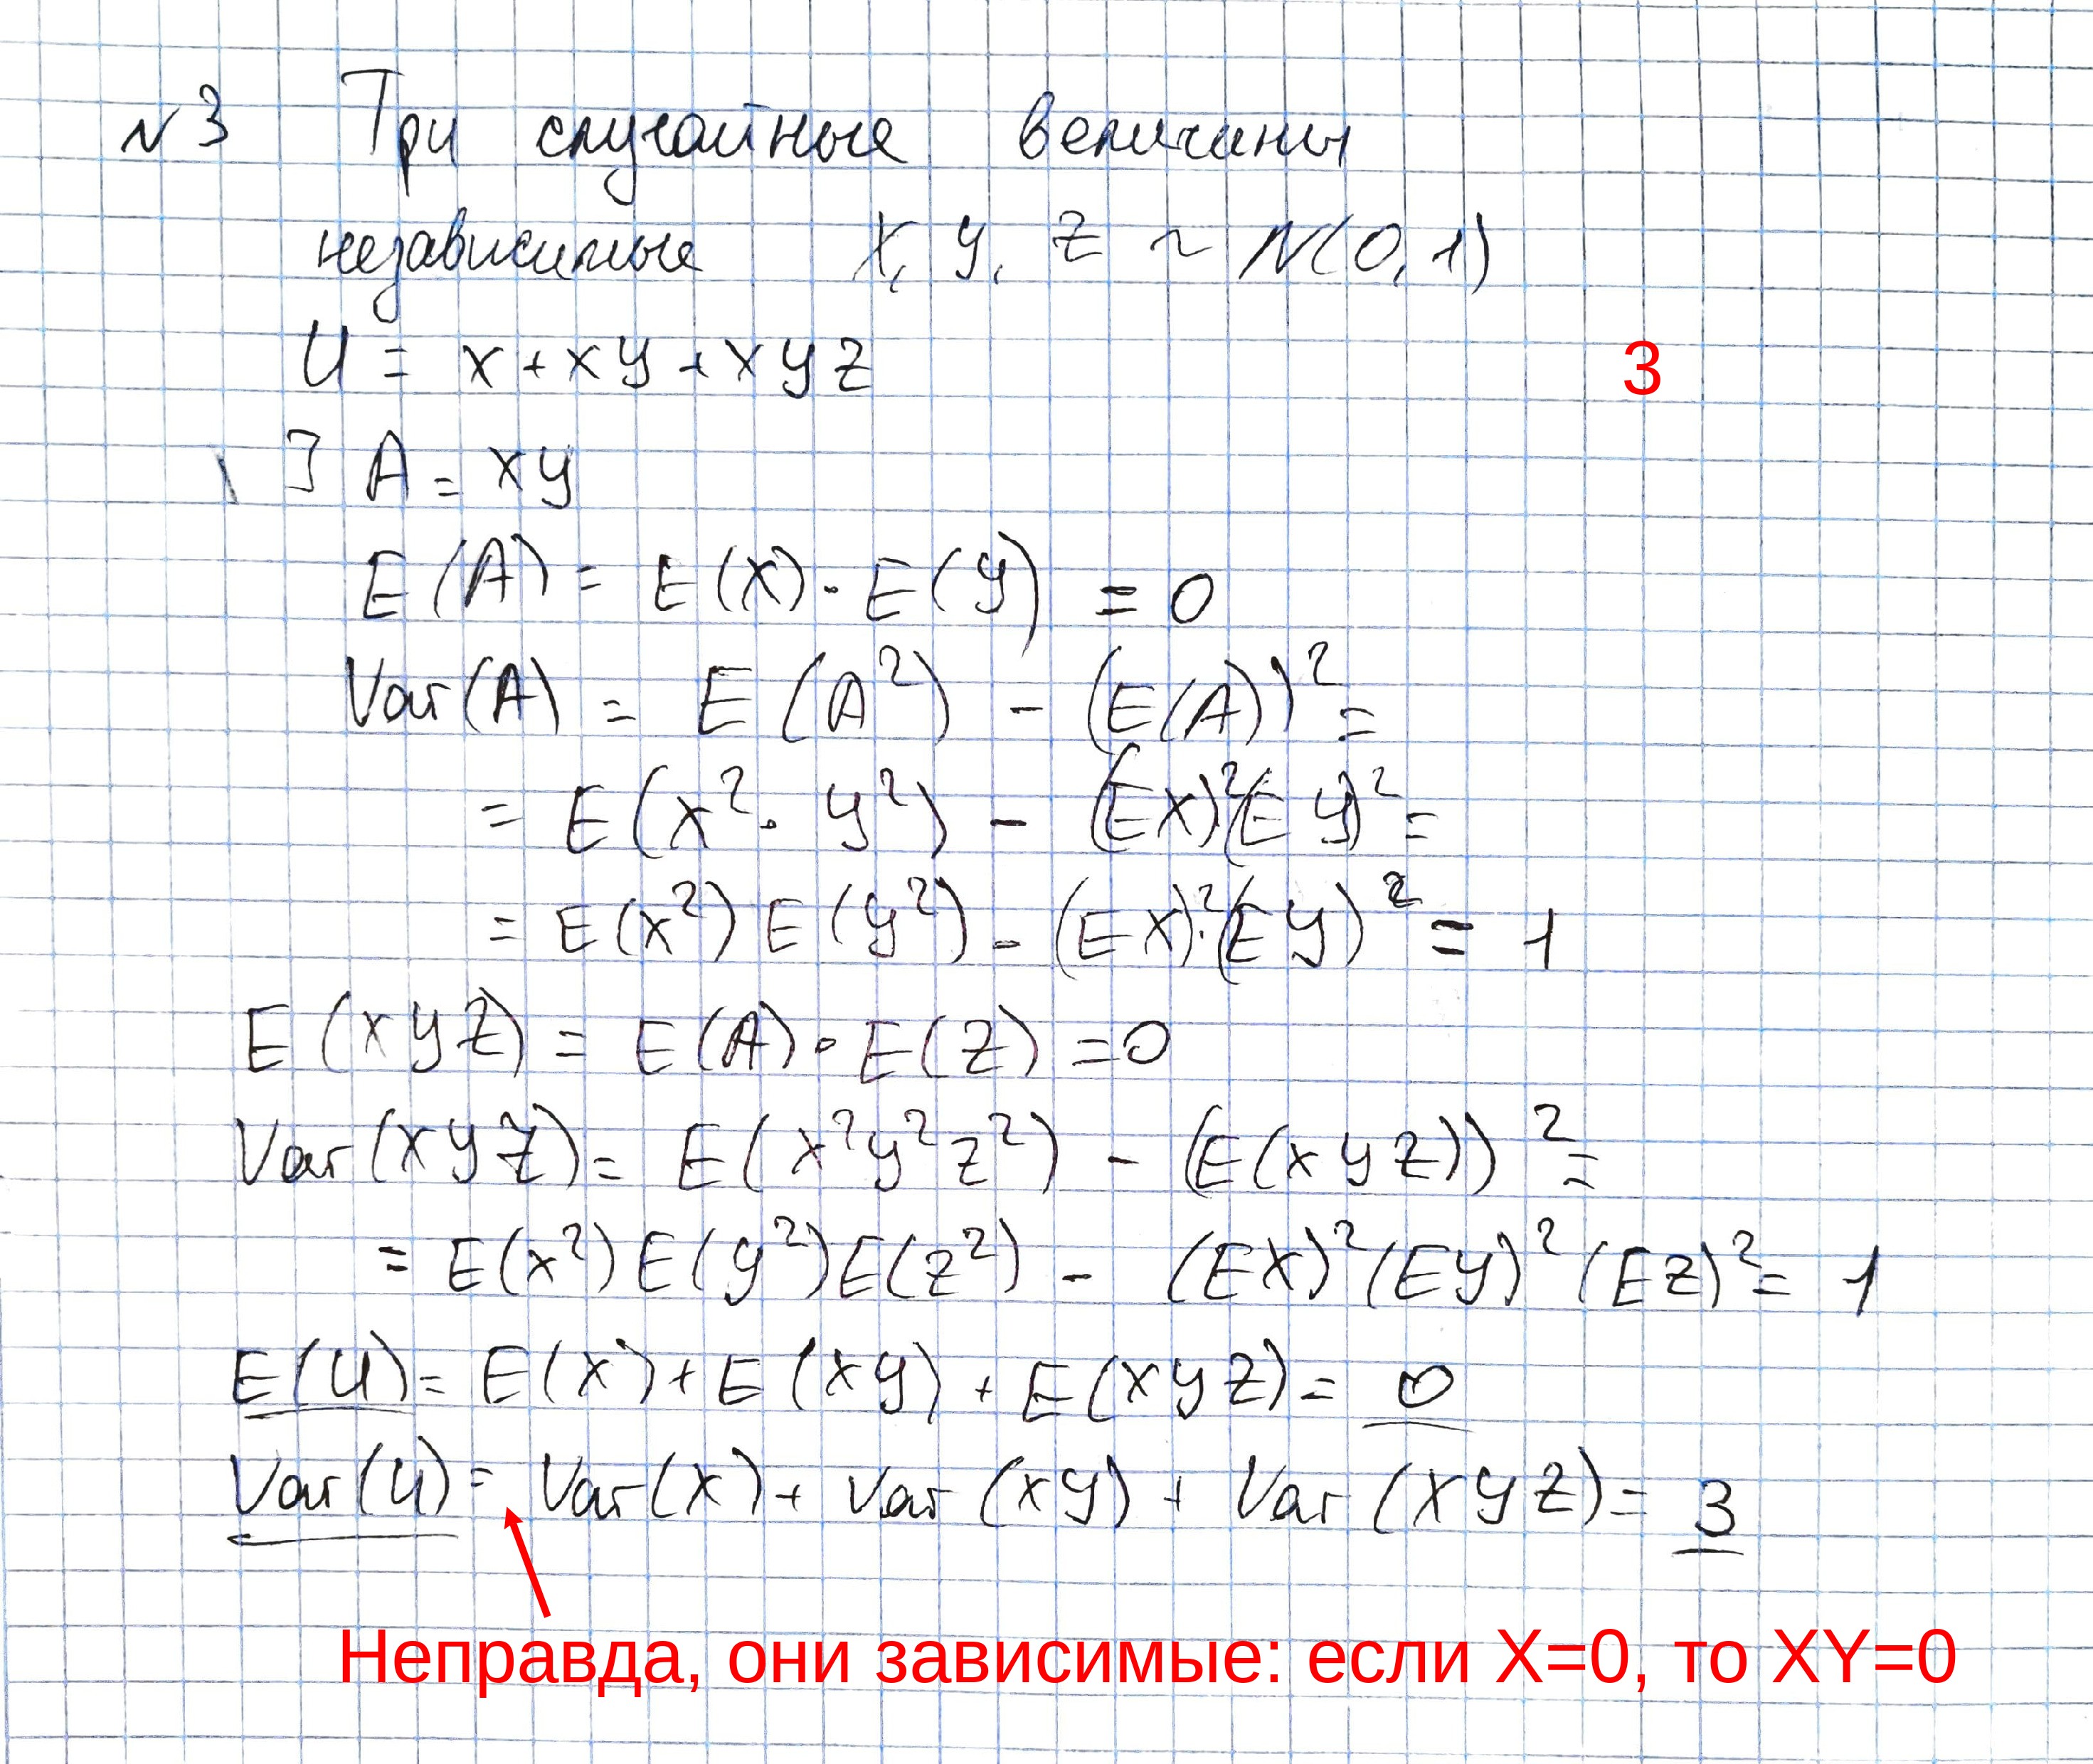 №3 Три случайные величины
независимые X, Y, Z ~ N(0,1)
U = X + XY + XYZ
3
] A = XY
E(A) = E(X) · E(Y) = 0
Var(A) = E(A²) - (E(A))² =
= E(X² · Y²) - (EX)²(EY)² =
= E(X²) E(Y²) - (EX)² · (EY)² = 1
E(XYZ) = E(A) · E(Z) = 0
Var(XYZ) = E(X²Y²Z²) - (E(XYZ))² =
= E(X²) E(Y²) E(Z²) - (EX)² (EY)² (EZ)² = 1
E(U) = E(X) + E(XY) + E(XYZ) = 0
Var(U) = Var(X) + Var(XY) + Var(XYZ) = 3
Неправда, они зависимые: если X=0, то XY=0